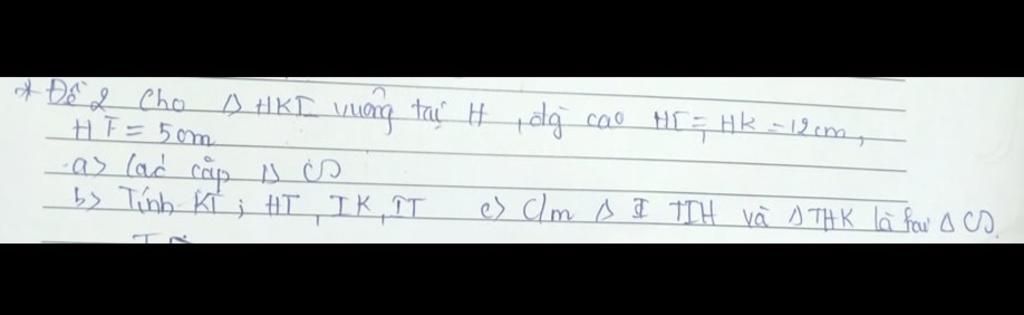 * Đề 2 Cho Δ HKI vuông tại H, đg cao HT, HK = 12cm,
HI = 5cm
a> Các cặp Δ ∽
b> Tính KI; HT, TK, IT c> C/m Δ TIH và Δ THK là hai Δ ∽.